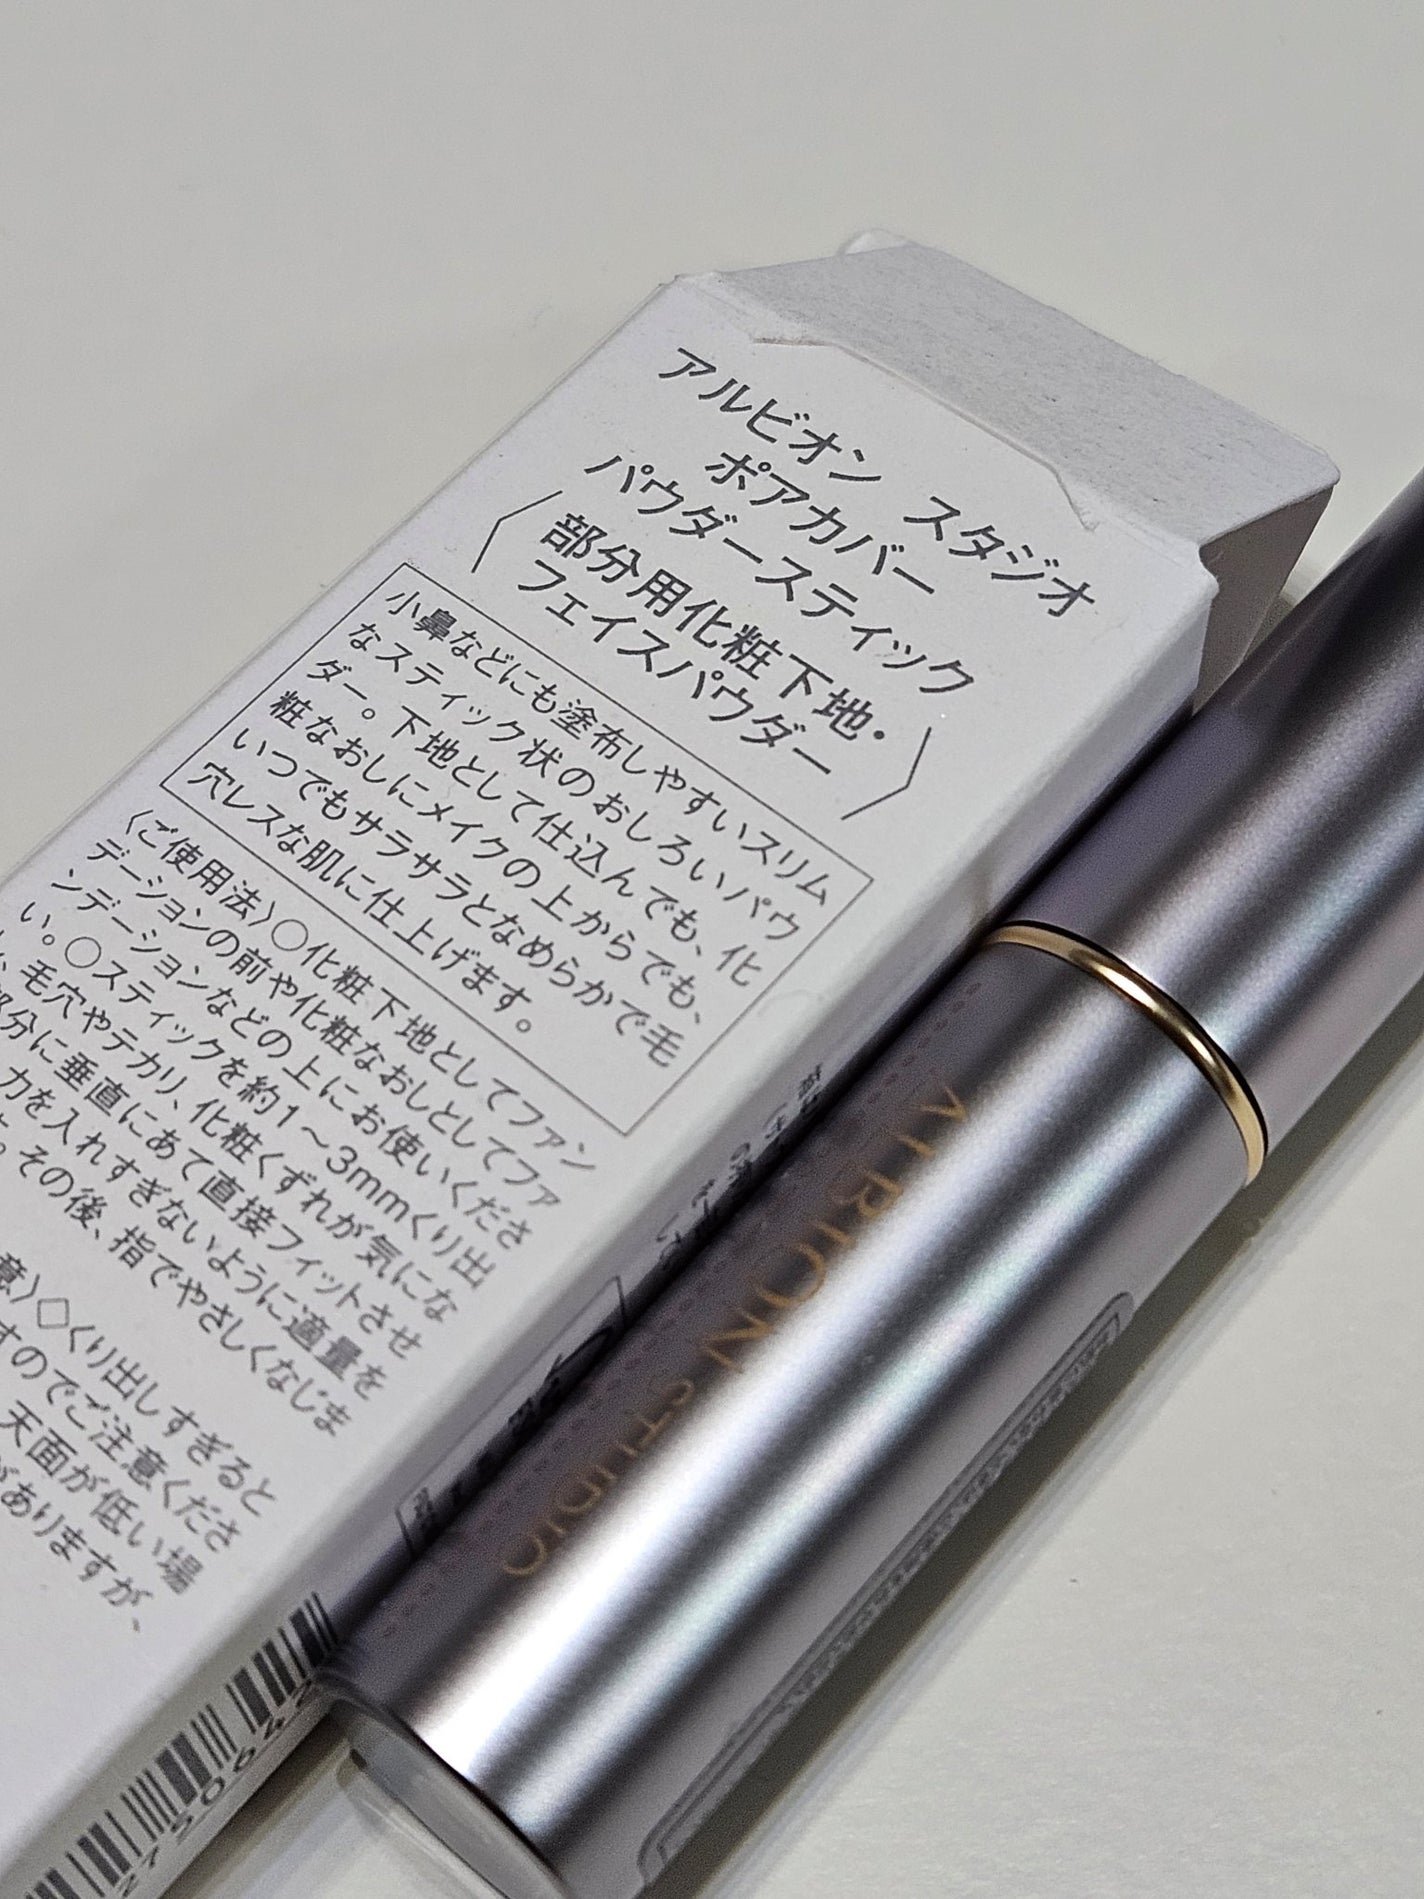 アルビオン スタジオ
ポアカバー
パウダースティック
〈部分用化粧下地・
フェイスパウダー〉
小鼻などにも塗布しやすいスリム
なスティック状のおしろいパウ
ダー。下地として仕込んでも、化
粧なおしにメイクの上からでも、
いつでもサラサラとなめらかで毛
穴レスな肌に仕上げます。
〈ご使用法〉○化粧下地としてファン
デーションの前や化粧なおしとしてファ
ンデーションなどの上にお使いくださ
い。○スティックを約1～3mmくり出
毛穴やテカリ、化粧くずれが気にな
部分に垂直にあて直接フィットさせ
力を入れすぎないように適量を
その後、指でやさしくなじま
意〉◇くり出しすぎると
すのでご注意くださ
天面が低い場
がありますが、
ALBION STUDIO